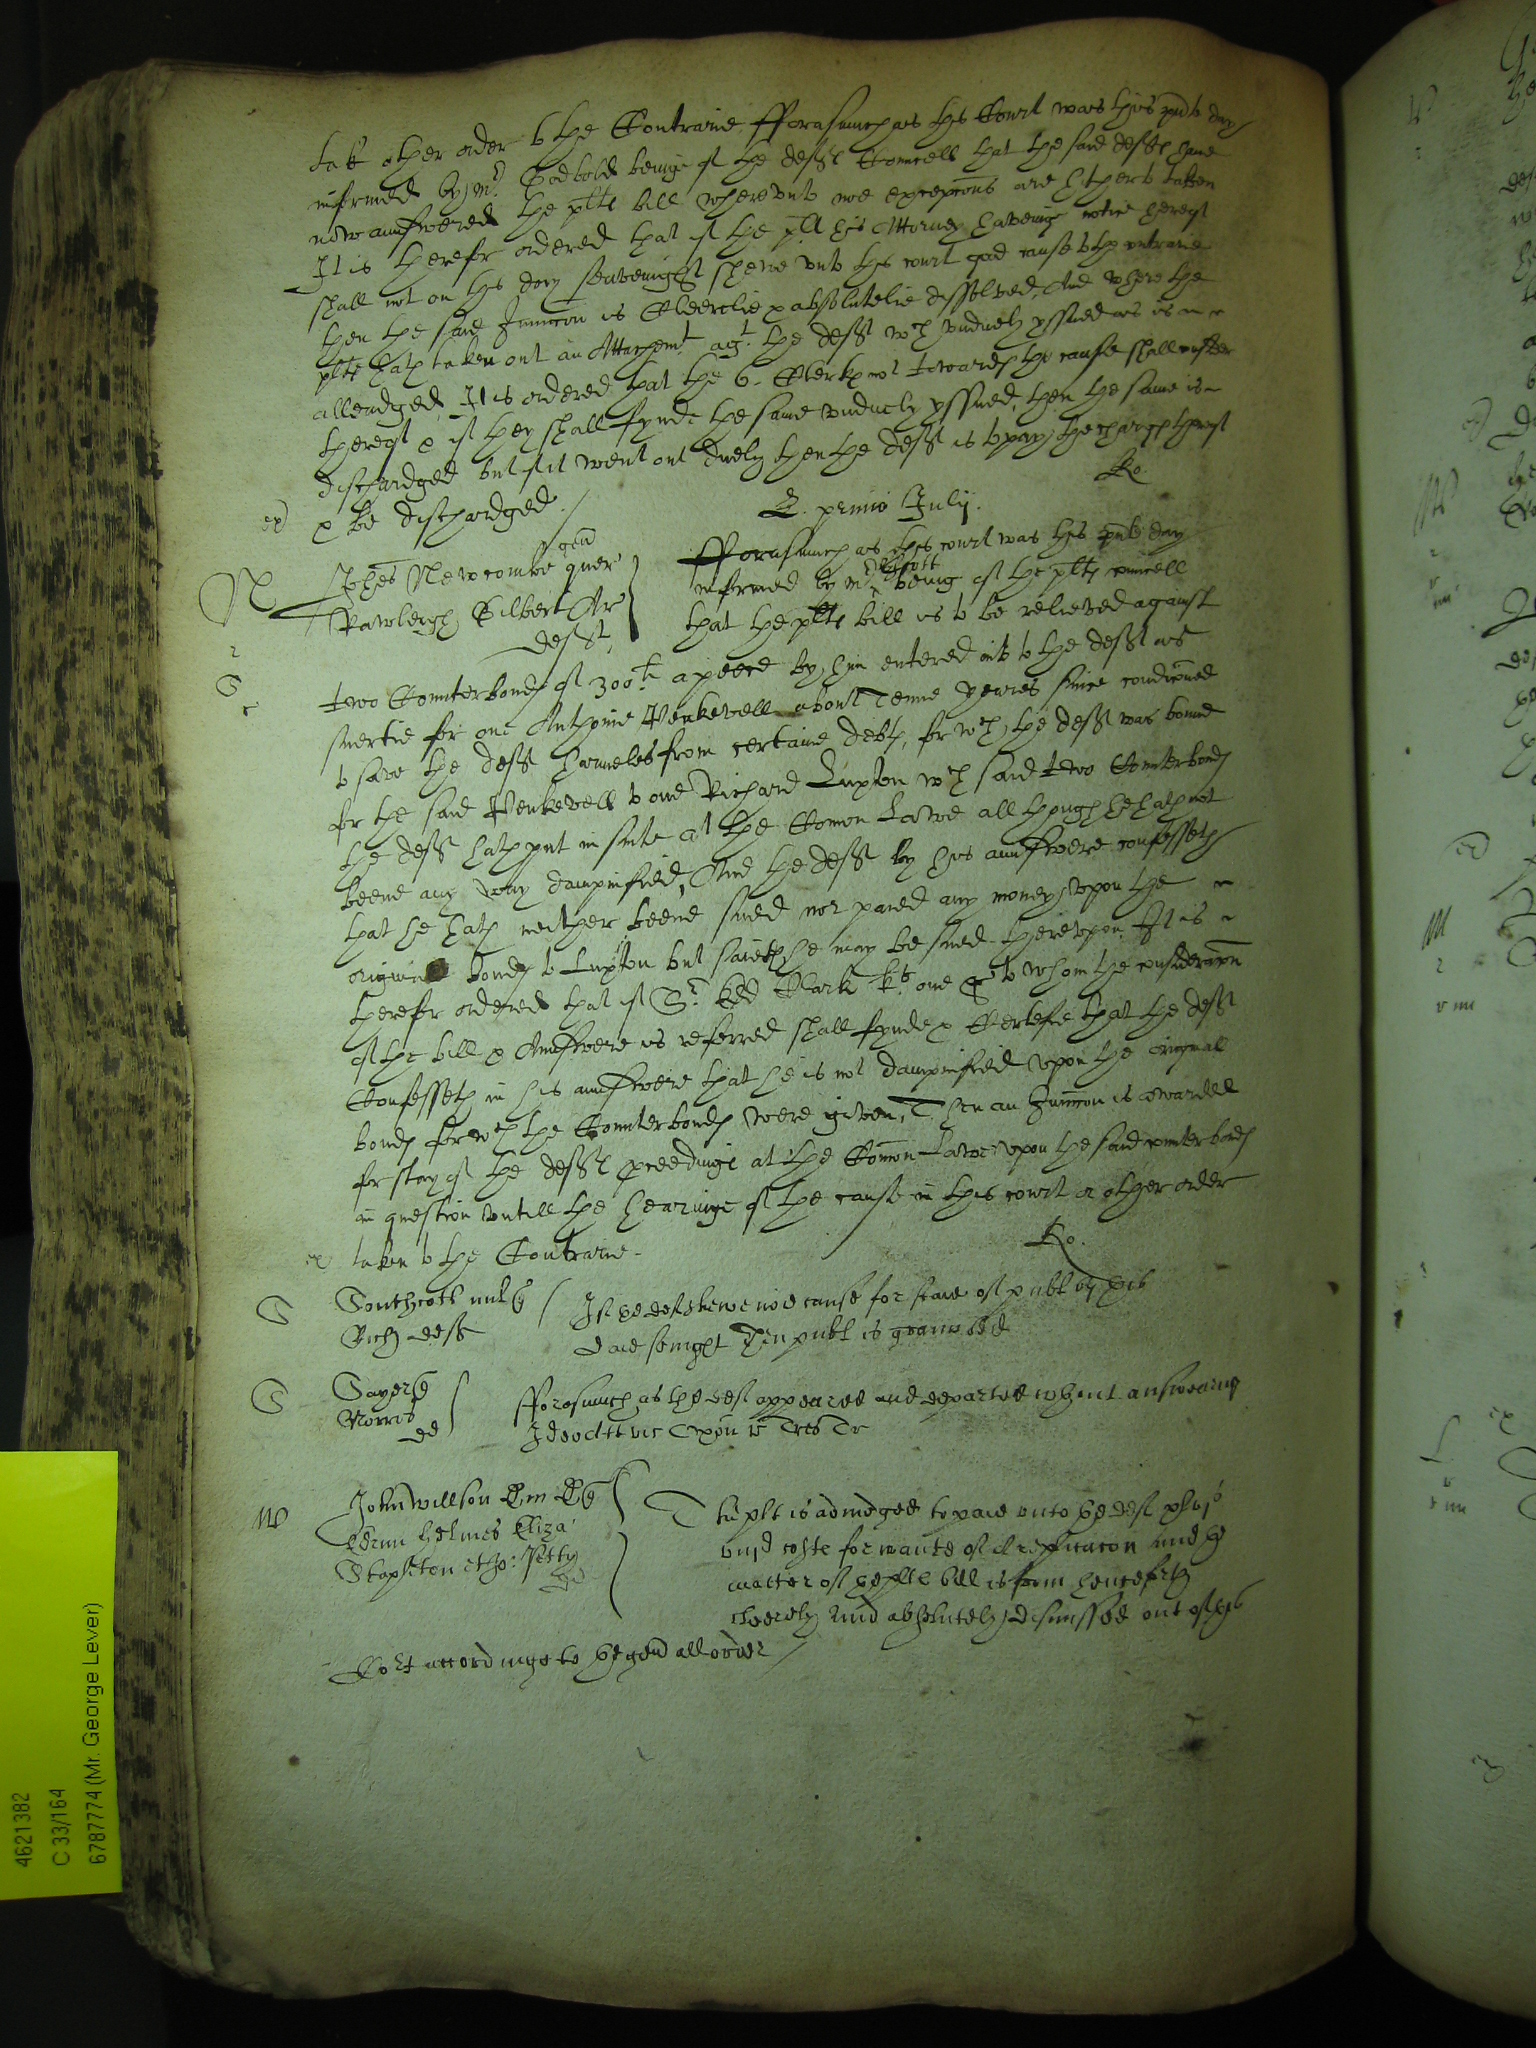 take other order to the Contrarie. Fforasmuch as this Court was this pnte day
informed by Mr. Godbold beinge of the defftes Councell that the said defftes have
now aunswered the pltes bill whereunto noe excepcons are hitherto taken
It is therefore ordered that if the plt his Attorney haveinge notice hereof
shall not on this day seavenight shewe unto this court good cause to the contrarie
then the said Iniunccon is Cleerelie & absolutelie dissolved, And where the
plte hath taken out an Attachemt. agt. the defft wch unduely yssued as is
alleadged, It is ordered that the 6. Clerkes not towardes the cause shall
thereof & if they shall fynde the same unduely yssued, then the same is
dischardged but if it went out duely then the defft is to pay the thereof
& be dischardged. Ro.
ex
D. primo July.
N
Johes Newcombe gen quer
Rawleigh Gilbert Ar
defft,
Fforasmuch as this court was this pnte day
informed by mr being of the pltes councell
that the pltes bill is to be relieved against
two Counterbondes of 300li. a peece by him entered into to the defft as
suertie for one Anthonie Penkevell about Tenne yeares since condiconed
to save the defft harmeles from certaine debtes, for wch the defft was bound
for the said Penkevell to one Richard Luxton wch said two Counterbondes
the defft hath put in suite at the Comon Lawe all though he hath not
beene any way dampnified, And the defft by his aunswere confesseth
that he hath neither beene sued nor paied any money upon the
originall bondes to Luxton but saieth he may be sued thereupon. It is
therefore ordered that if Sr. Edd Clark kt. one &c to whom the consideracon
of the bill & Aunswere is referred shall fynde & Certefie that the defft
Confesseth in his aunswere that he is not dampnified upon the originall
bondes for wch the Counterbondes were given, Then an Iniunccon is awarded
for stay of the defftes proceedinge at the Comon Lawe upon the said counterbondes
in question untill the hearinge of the cause in this court or other order
ex taken to the Contrarie. Ro.
S
Southcott
Rich deft
If the deft shewe noe cause for staie of publ by this
daie senight Then publ is graunted
S
Sayer
Norris
de
Fforasmuch as the deft appeared and departed wthout answearing
W
John Willson
Helmes Eliza
Stapleton et Tho: Petty
de
The plt is adiudged to paie unto the deft
costes for wante of A replicacon and the
matter of the pltes bill is from henceforth
cleerely and absolutely dismissed out of this
Cort accordinge to the genall order
4621382
C 33/164
6787774 (Mr. George Lever)